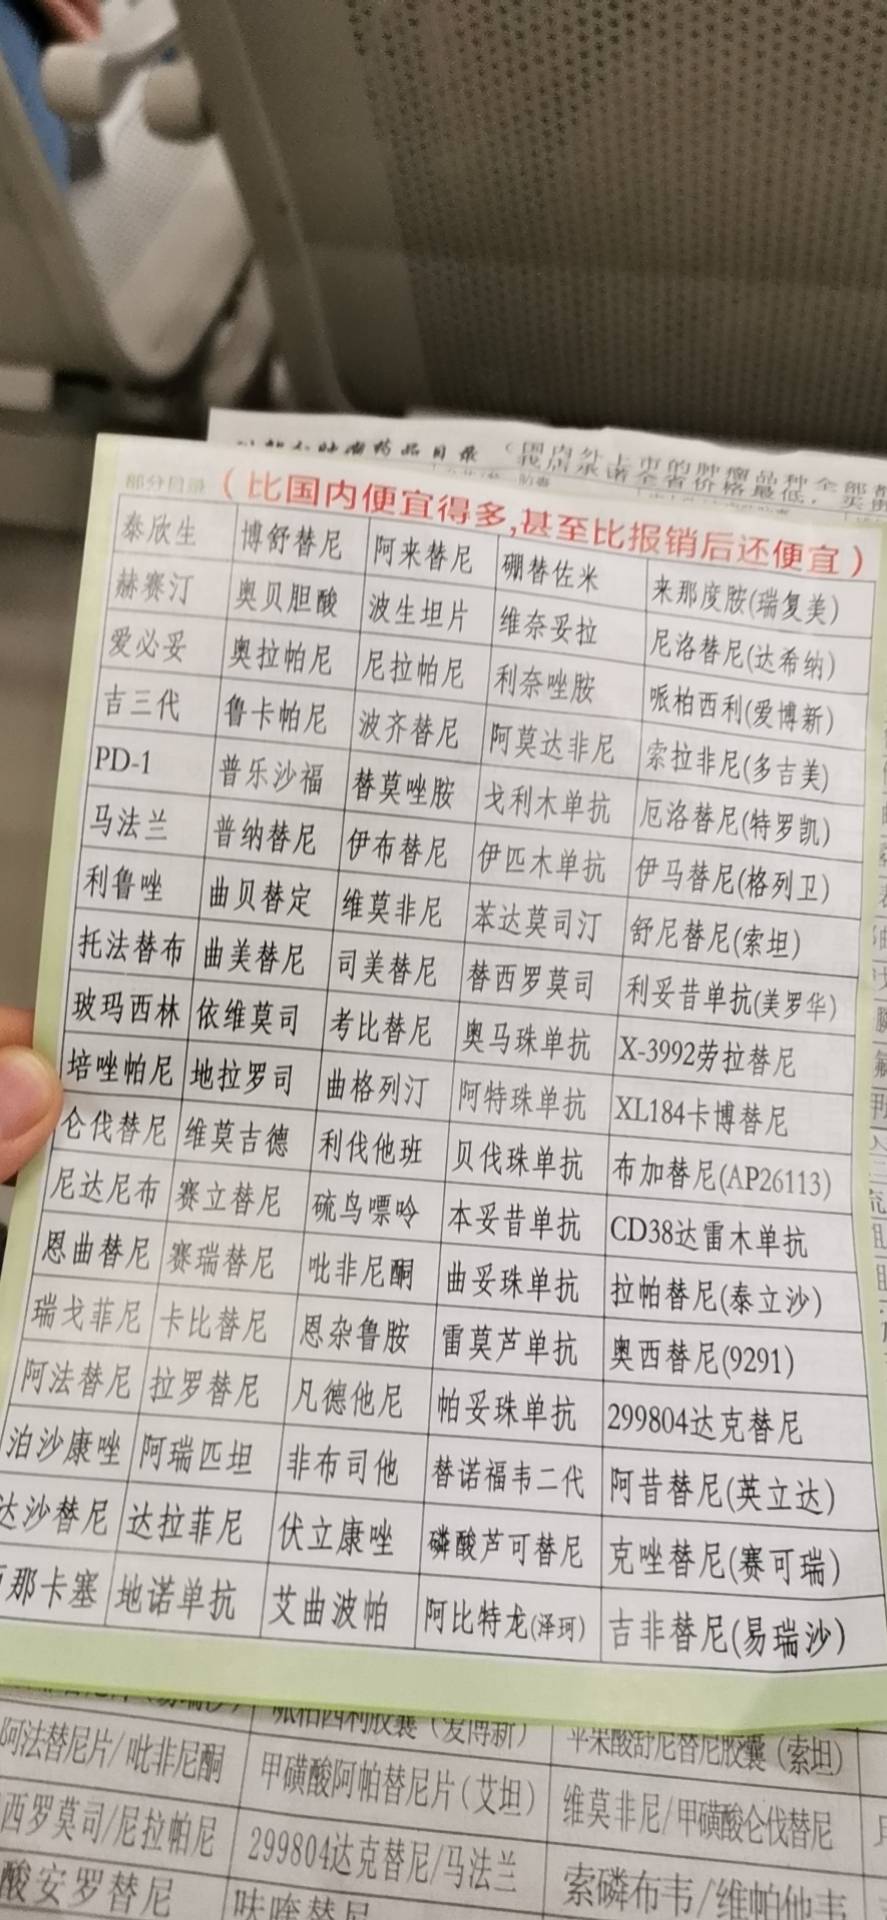 肿瘤药品目录（国内外上市的肿瘤品种全部都
我店承诺全省价格最低，买贵
部分目录（比国内便宜得多,甚至比报销后还便宜）
泰欣生 博舒替尼 阿来替尼 硼替佐米 来那度胺(瑞复美)
赫赛汀 奥贝胆酸 波生坦片 维奈妥拉 尼洛替尼(达希纳)
爱必妥 奥拉帕尼 尼拉帕尼 利奈唑胺 哌柏西利(爱博新)
吉三代 鲁卡帕尼 波齐替尼 阿莫达非尼 索拉非尼(多吉美)
PD-1 普乐沙福 替莫唑胺 戈利木单抗 厄洛替尼(特罗凯)
马法兰 普纳替尼 伊布替尼 伊匹木单抗 伊马替尼(格列卫)
利鲁唑 曲贝替定 维莫非尼 苯达莫司汀 舒尼替尼(索坦)
托法替布 曲美替尼 司美替尼 替西罗莫司 利妥昔单抗(美罗华)
玻玛西林 依维莫司 考比替尼 奥马珠单抗 X-3992劳拉替尼
培唑帕尼 地拉罗司 曲格列汀 阿特珠单抗 XL184卡博替尼
仑伐替尼 维莫吉德 利伐他班 贝伐珠单抗 布加替尼(AP26113)
尼达尼布 赛立替尼 硫鸟嘌呤 本妥昔单抗 CD38达雷木单抗
恩曲替尼 赛瑞替尼 吡非尼酮 曲妥珠单抗 拉帕替尼(泰立沙)
瑞戈菲尼 卡比替尼 恩杂鲁胺 雷莫芦单抗 奥西替尼(9291)
阿法替尼 拉罗替尼 凡德他尼 帕妥珠单抗 299804达克替尼
泊沙康唑 阿瑞匹坦 非布司他 替诺福韦二代 阿昔替尼(英立达)
达沙替尼 达拉菲尼 伏立康唑 磷酸芦可替尼 克唑替尼(赛可瑞)
那卡塞 地诺单抗 艾曲波帕 阿比特龙(泽珂) 吉非替尼(易瑞沙)
哌柏西利胶囊（爱博新） 苹果酸舒尼替尼胶囊（索坦）
阿法替尼片/吡非尼酮 甲磺酸阿帕替尼片（艾坦） 维莫非尼/甲磺酸仑伐替尼
西罗莫司/尼拉帕尼 299804达克替尼/马法兰 索磷布韦/维帕他韦
酸安罗替尼 呋喹替尼